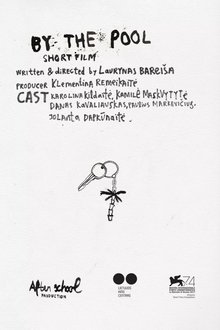 BY THE POOL
SHORT FILM
WRITTEN & DIRECTED by LAURYNAS BAREIŠA
PRODUCER KLEMENTINA REMEIKAITĖ
CAST KAROLINA KILDAITĖ, KAMILĖ MASKVYTYTĖ
DANAS KAVALIAUSKAS, PAULIUS MARKEVIČIUS,
JOLANTA DAPKŪNAITĖ
After school
PRODUCTION
LIETUVOS
KINO
CENTRAS
74